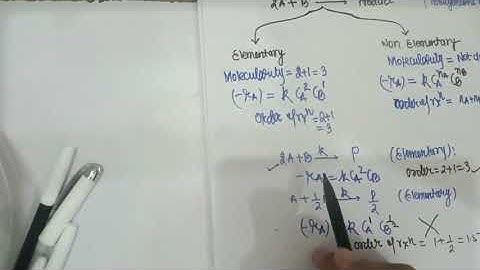 2A + B → Product
Elementary
Molecularity = 2+1 = 3
(-rA) = k CA² CB¹
Order of rxn = 2+1
= 3
Non Elementary
Molecularity = Not
(-rA) = k CA^nA CB^nB
order of rxn = nA+
2A+B –k→ P (Elementary):
-rA = k CA² CB order = 2+1 = 3 ✓
A + 1/2 k→ P/2 (Elementary)
(-rA) k CA¹ CB^1/2
order of rxn = 1 + 1/2 = 1.5